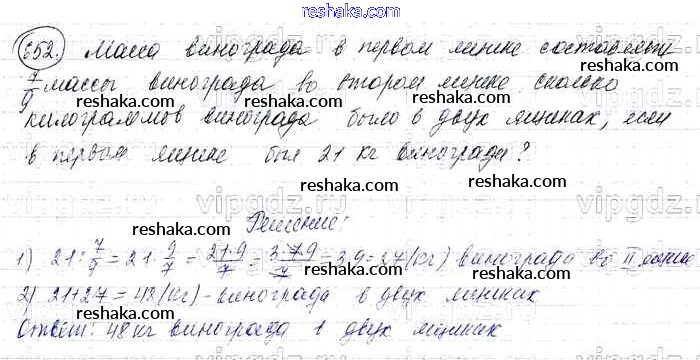 reshaka.com
652. Масса винограда в первом ящике составляет
7/9 массы винограда во втором ящике сколько
reshaka.com reshaka.com
килограммов винограда было в двух ящиках, если
в первом ящике был 21 кг винограда?
reshaka.com reshaka.com
Решение:
reshaka.com
1) 21 : 7/9 = 21 · 9/7 = 21·9/7 = 3·7·9/7 = 3·9 = 27 (кг) винограда во II ящике
reshaka.com reshaka.com
2) 21+27=48 (кг) - винограда в двух ящиках
reshaka.com
Ответ: 48 кг винограда в двух ящиках
reshaka.com reshaka.com